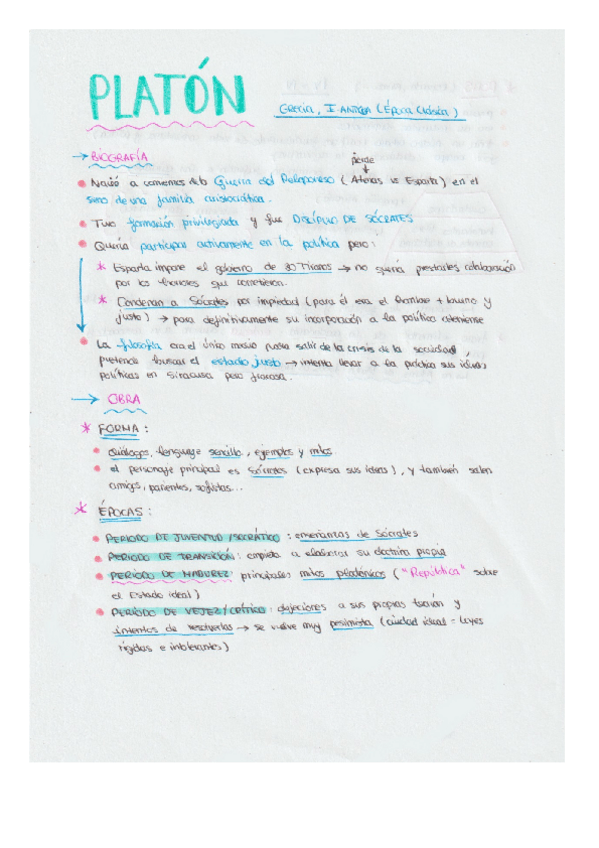 PLATÓN
GRECIA, F. ANTIGUA (ÉPOCA Clásica)
→ BIOGRAFÍA
pierde
• Nació a comienzos de la Guerra del Peloponeso (Atenas vs Esparta) en el
seno de una familia aristocrática.
• Tuvo formación privilegiada y fue DISCÍPULO DE SÓCRATES
• Quería participar activamente en la política pero:
* Esparta impone el gobierno de 30 Tiranos → no quería prestarles colaboración
por los horrores que cometieron.
* Condenan a Sócrates por impiedad (para él era el hombre + bueno y
justo) → para definitivamente su incorporación a la política ateniense
• La filosofía era el único medio para salir de la crisis de la sociedad,
pretende buscar el estado justo → intenta llevar a la práctica sus ideas
políticas en Siracusa pero fracasa.
→ OBRA
* FORMA:
• diálogos, lenguaje sencillo, ejemplos y mitos
• el personaje principal es Sócrates (expresa sus ideas), y también salen
amigos, parientes, sofistas...
* ÉPOCAS:
• PERIODO DE JUVENTUD/SOCRÁTICO: enseñanzas de Sócrates
• PERIODO DE TRANSICIÓN: empieza a elaborar su doctrina propia
• PERIODO DE MADUREZ: principales mitos platónicos ("República" sobre
el Estado ideal)
• PERÍODO DE VEJEZ/CRÍTICO: objeciones a sus propias teorías y
intentos de resolverlas → se vuelve muy pesimista (ciudad ideal = leyes
rígidas e intolerantes)